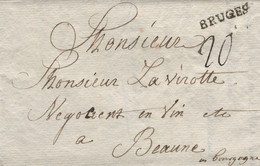 BRUGES
Monsieur
20
Monsieur La Virotte
Negocient en Vin etc
a
Beaune
en bourgogne